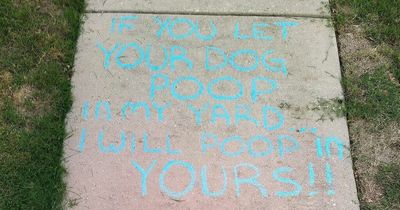 IF YOU LET
YOUR DOG
POOP
in MY YARD...
I WILL POOP in
YOURS!!